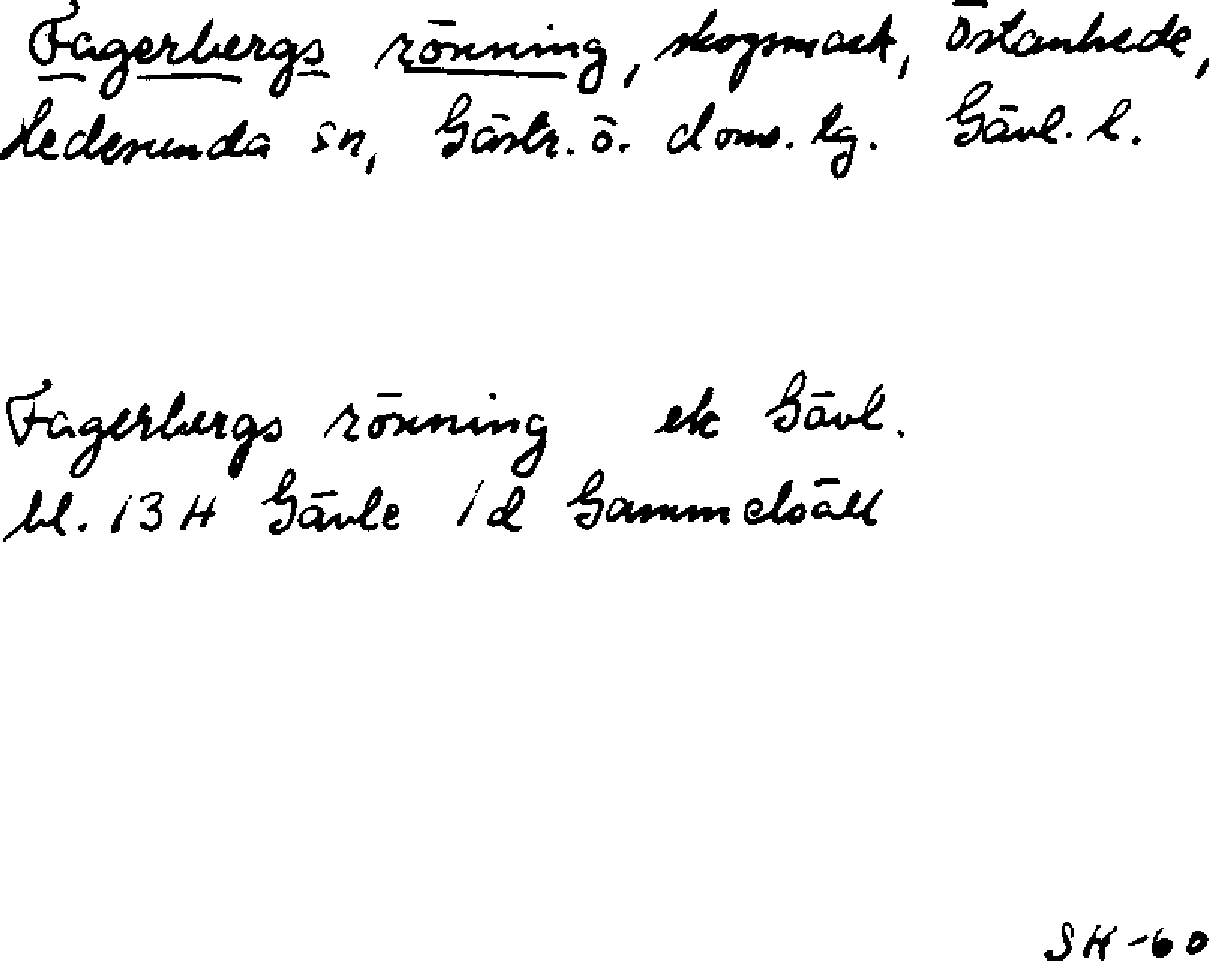 Fagerbergs rönning, skogsmark, Östanhede,
Hedesunda sn, Gästr. ö. doms. tg. Gävl. l.
Fagerbergs rönning ek Gävl.
bl. 13 H Gävle 1d Gammelsäll
SK-60